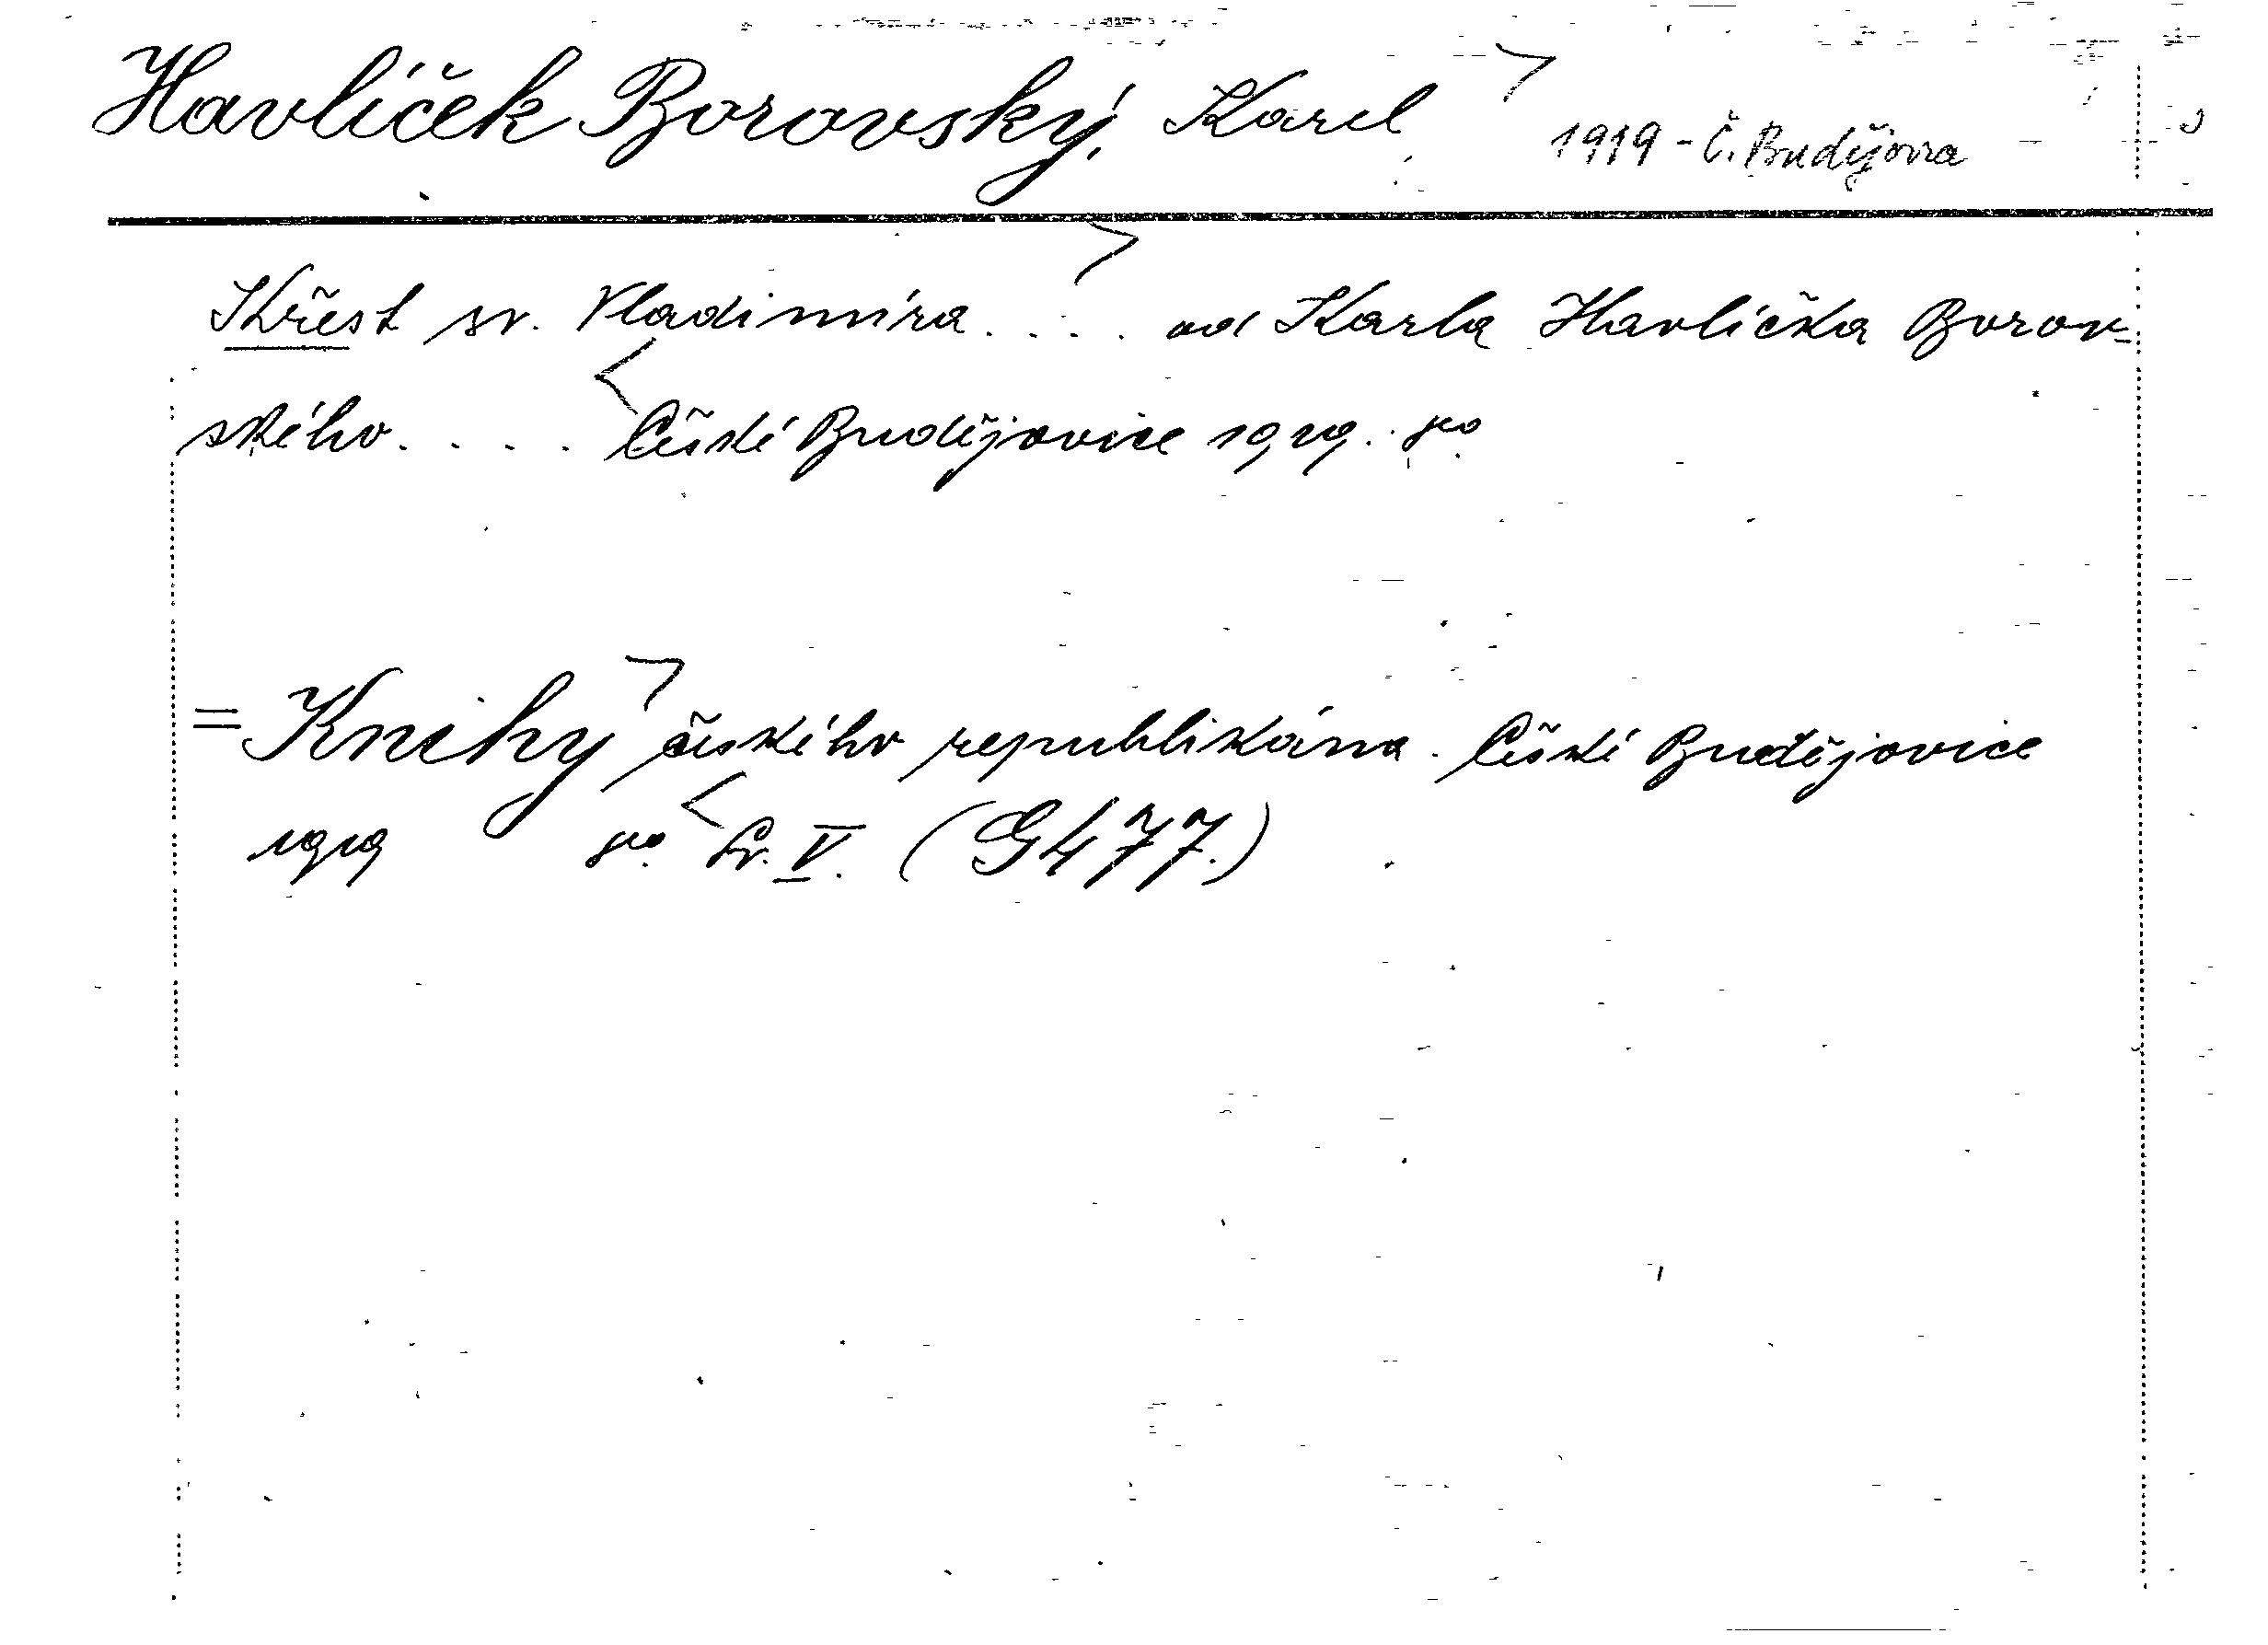 Havlíček Borovský, Karel 1919 - Č. Budějovice
Křest sv. Vladimíra. . . . od Karla Havlíčka Borov-
ského. . . . České Budějovice 1919. 8º
= Knihy českého republikána. České Budějovice
1919 8º. Sv. V. (G 477.)